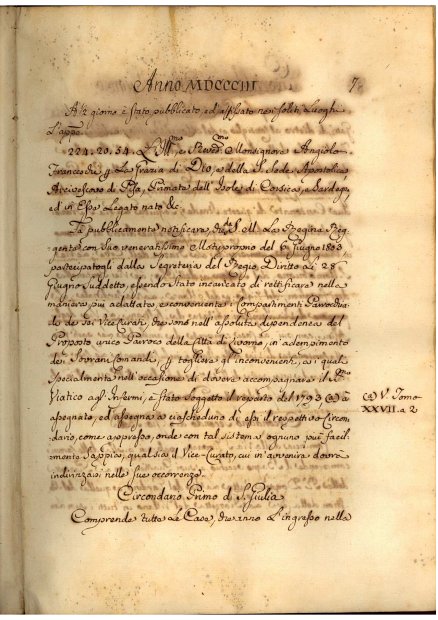 Anno MDCCCIII
7
A dì giorno è stato pubblicato, ed affisso nei soliti Luoghi
L'appo
224. 20. 54. Ill.mo e Rev.mo Monsignore Angiolo
Franceschi p La Grazia di Dio, e della S. Sede Apostolica
Arcivescovo di Pisa, Primate dell'Isole di Corsica, e Sardegna,
ed in Esse Legato nato &c.
Fa pubblicamente notificare, che S. M. La Regina Reg-
gente con Suo veneratissimo Motuproprio del 6 Giugno 1803
partecipatogli dalla Segreteria del Regio Diritto Li 28
Giugno Suddetto, essendo Stato incaricato di rettificare nella
maniera più adattata, e conveniente i Compartimenti Parrochia-
li de Sei Vice Curati, che sono nell'assoluta dipendenza del
Proposto unico Parroco della Città di Livorno, in adempimento
dei Sovrani Comandi, p togliere gl'inconvenienti, a i quali
Specialmente nell'occasione di dovere accompagnare il S.mo
Viatico agl'Infermi, è stato Soggetto il reparto del 1793 @ à
assegnato, ed assegna a ciascheduno di essi il respettivo Circon-
dario, come appresso, onde con tal sistema ognuno più facil-
mente Sappia, qual sia il Vice-Curato, cui in avvenire dovrà
indirizzarsi nelle sue occorrenze.
@ V. Tomo
XXVII. a 2
Circondario Primo di S. Giulia
Comprende tutte Le Case, che anno L'ingresso nella